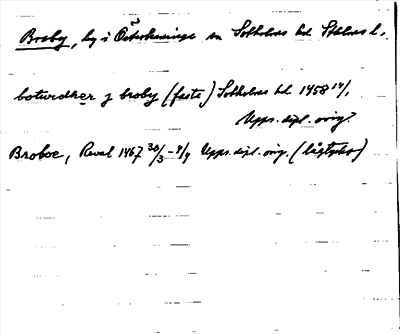 Broby, by i Österhaninge sn Sotholms hd Sthlms l.
botwidher j broby (faste) Sotholms hd. 1458 14/1
Upps. dipl. orig.
Broboe, Reval 1467 30/3 – 4/4 Upps. dipl. orig. (lågtyska)